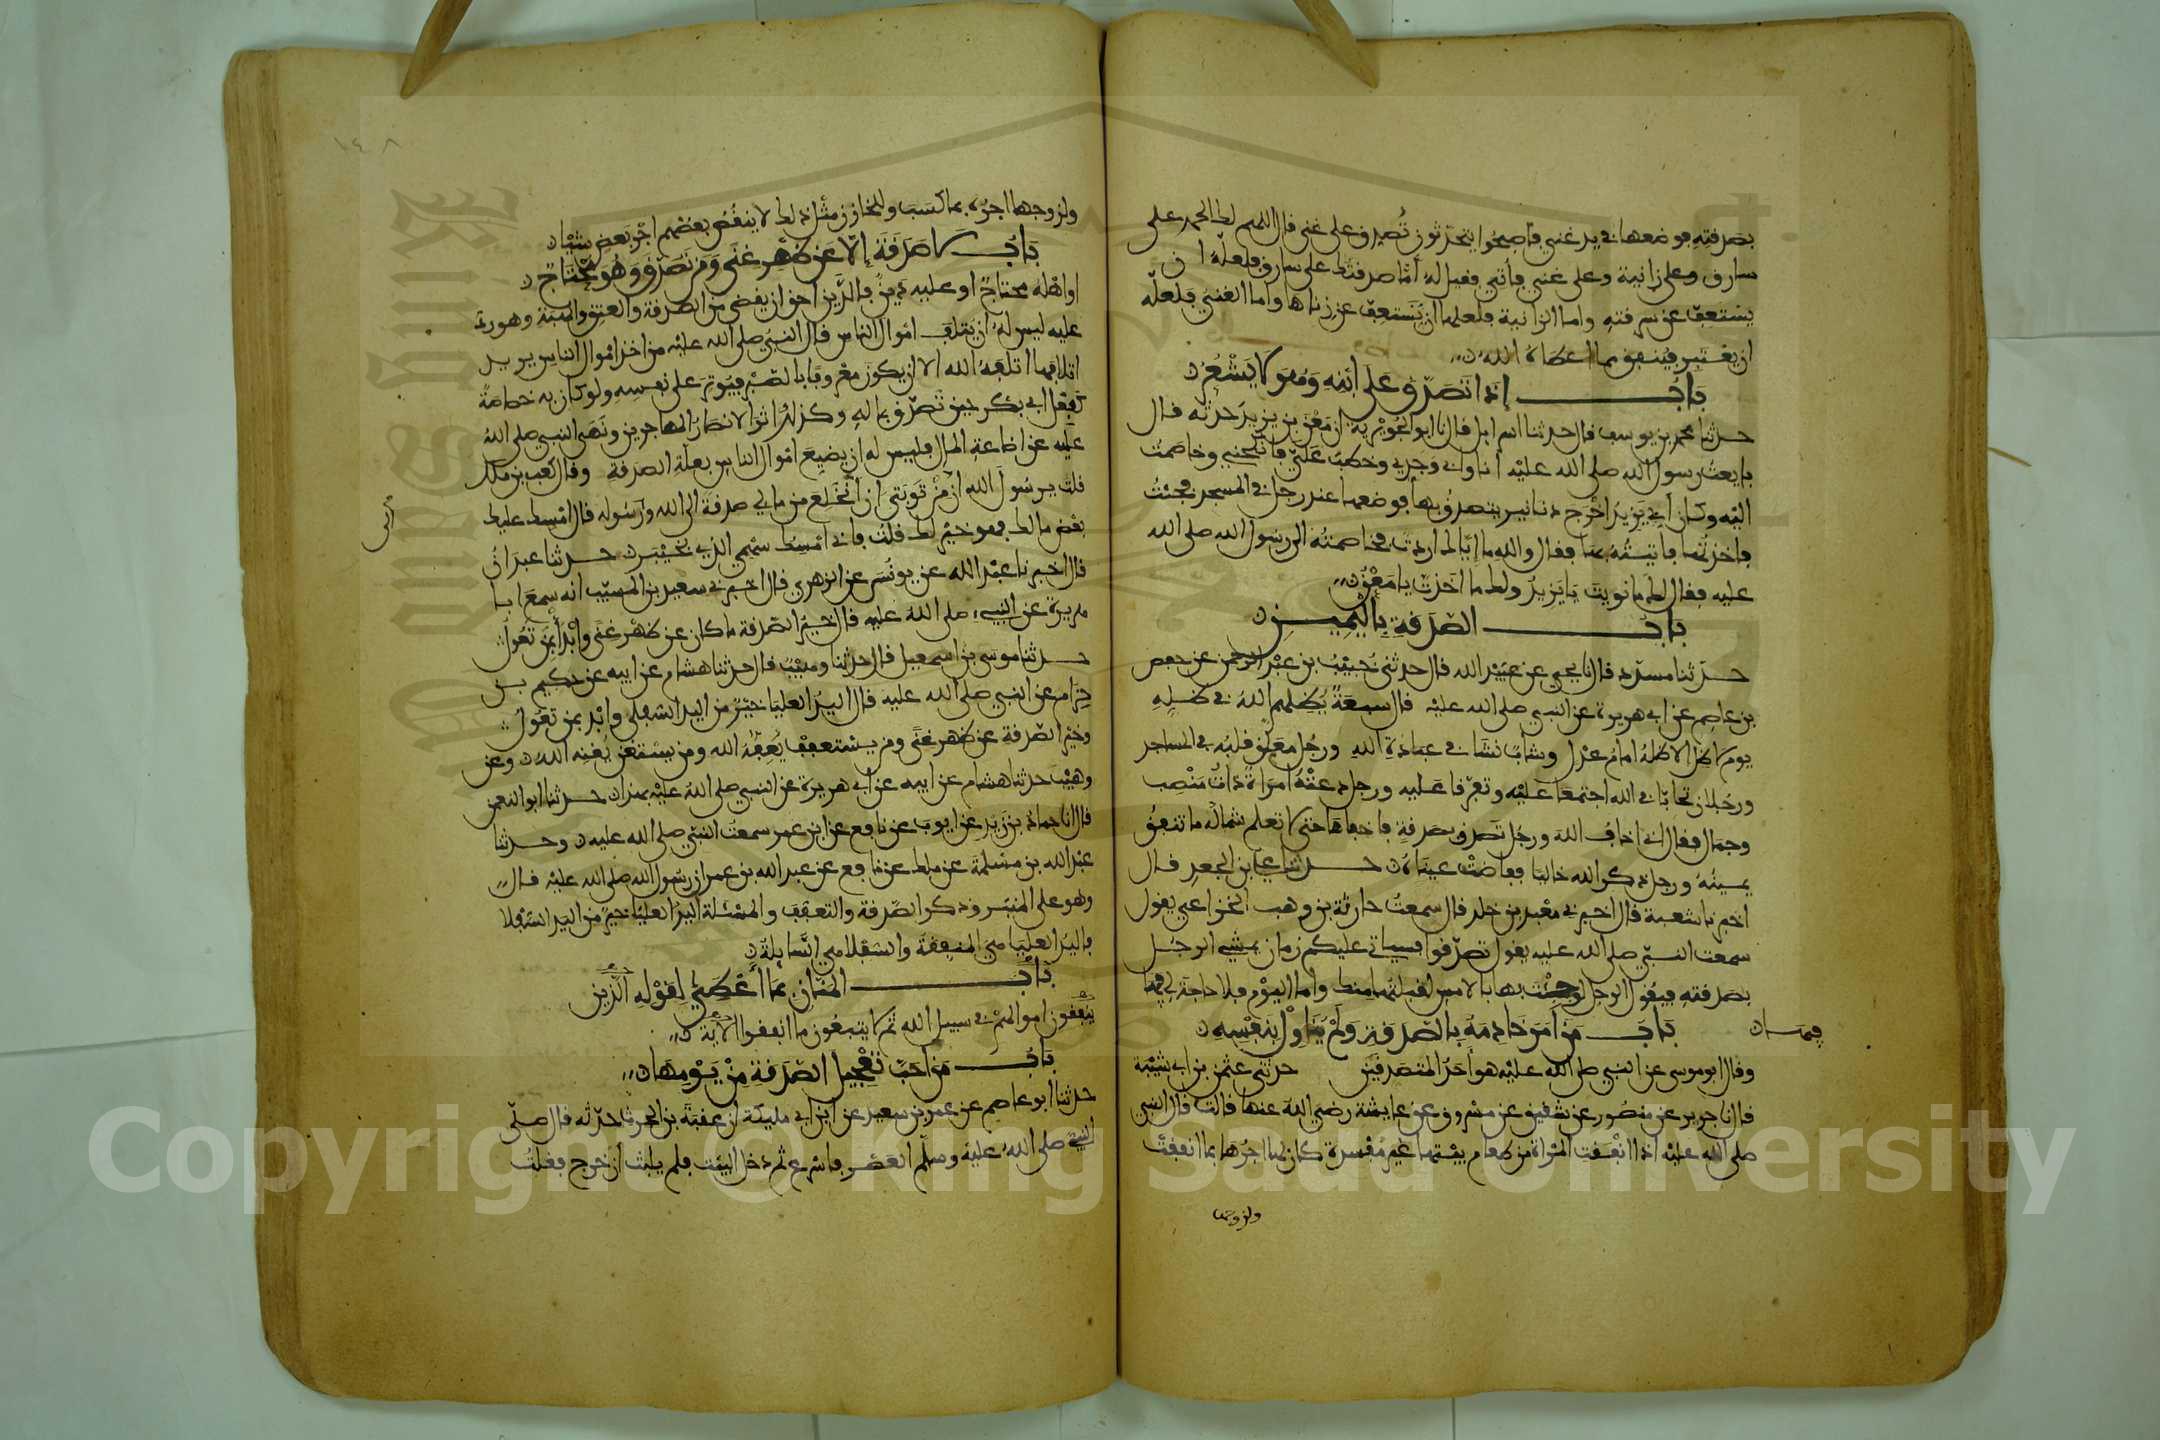 بصدقته فوضعها في يد غني فأصبحوا يتحدثون تُصدق على غني فقال اللهم لك الحمد على
سارق وعلى زانية وعلى غني فأتي فقيل له أما صدقتك على سارق فلعله ان
يستعف عن سرقته واما الزانية فلعلها أن تستعف عن زناها واما الغني فلعله
ان يعتبر فينفق مما اعطاه الله
باب إذا تصدق على ابنه وهو لا يشعر
حدثنا محمد بن يوسف قال حدثنا اسرايل قال نا ابو الجويرية ان معن بن يزيد حدثه قال
بايعت رسول الله صلى الله عليه أنا وابي وجدي وخطب علي فانكحني وخاصمت
اليه وكان أبي يزيد اخرج دنانير يتصدق بها فوضعها عند رجل في المسجد فجئت
فاخذتها فاتيته بها فقال والله ما إياك اردت فخاصمته الى رسول الله صلى الله
عليه فقال لك ما نويت يا يزيد ولك ما اخذت يا معن
باب الصدقة باليمين
حدثنا مسدد قال نا يحيى عن عبيد الله قال حدثني خبيب بن عبد الرحمن عن حفص
بن عاصم عن ابي هريرة عن النبي صلى الله عليه قال سبعة يظلهم الله في ظله
يوم لا ظل الا ظله امام عدل وشاب نشأ في عبادة الله ورجل معلق قلبه في المساجد
ورجلان تحابا في الله اجتمعا عليه وتفرقا عليه ورجل دعته امراة ذات منصب
وجمال فقال اني اخاف الله ورجل تصدق بصدقة فاخفاها حتى لا تعلم شماله ما تنفق
يمينه ورجل ذكر الله خاليا ففاضت عيناه حدثنا علي بن الجعد قال
اخبرنا شعبة قال اخبرني معبد بن خلد قال سمعت حارثة بن وهب الخزاعي يقول
سمعت النبي صلى الله عليه يقول تصدقوا فسياتي عليكم زمان يمشي الرجل
بصدقته فيقول الرجل لو جئت بها بالامس لقبلتها منك واما اليوم فلا حاجة لي فيها
باب من أمر خادمه بالصدقة ولم يناول بنفسه
وقال ابو موسى عن النبي صلى الله عليه هو أحد المتصدقين حدثني عثمن بن ابي شيبة
قال نا جرير عن منصور عن شقيق عن مسروق عن عايشة رضي الله عنها قالت قال النبي
صلى الله عليه اذا انفقت المراة من طعام بيتها غير مفسدة كان لها اجرها بما انفقت
ولزوجها
١٤٨
ولزوجها اجره بما كسب وللخازن مثل ذلك لا ينقص بعضهم اجر بعض شيئا
باب لا صدقة إلا عن ظهر غنى ومن تصدق وهو محتاج
او اهله محتاج او عليه دين فالدين احق ان يقضى من الصدقة والعتق والهبة وهو رد
عليه ليس له أن يتلف اموال الناس قال النبي صلى الله عليه من اخذ اموال الناس يريد
اتلافها اتلفه الله الا ان يكون معروفا بالصبر فيوثر على نفسه ولو كان به خصاصة
كفعل ابي بكر حين تصدق بماله وكذلك اثر الانصار المهاجرين ونهى النبي صلى الله
عليه عن اضاعة المال فليس له ان يضيع اموال الناس بعلة الصدقة وقال كعب بن ملك
قلت يرسول الله ان من توبتي ان أنخلع من مالي صدقة الى الله ورسوله قال امسك عليك
بعض مالك فهو خير لك قلت فاني امسك سهمي الذي بخيبر حدثنا عبدان
قال اخبرنا عبد الله عن يونس عن الزهري قال اخبرني سعيد بن المسيب انه سمع ابا
هريرة عن النبي صلى الله عليه قال خير الصدقة ما كان عن ظهر غنى وابدأ بمن تعول
حدثنا موسى بن اسمعيل قال حدثنا وهيب قال حدثنا هشام عن ابيه عن حكيم بن
حزام عن النبي صلى الله عليه قال اليد العليا خير من اليد السفلى وابد بمن تعول
وخير الصدقة عن ظهر غنى ومن يستعفف يعفه الله ومن يستغن يغنه الله وعن
وهيب حدثنا هشام عن ابيه عن ابي هريرة عن النبي صلى الله عليه بهذا حدثنا ابو النعمن
قال نا حماد بن زيد عن ايوب عن نافع عن ابن عمر سمعت النبي صلى الله عليه وحدثنا
عبد الله بن مسلمة عن ملك عن نافع عن عبد الله بن عمر ان رسول الله صلى الله عليه قال
وهو على المنبر وذكر الصدقة والتعفف والمسئلة اليد العليا خير من اليد السفلا
فاليد العليا هي المنفقة والسفلا هي السايلة
باب المنان بما أعطى لقوله الذين
ينفقون اموالهم في سبيل الله ثم لا يتبعون ما انفقوا الاية
باب من احب تعجيل الصدقة من يومها
حدثنا ابو عاصم عن عمر بن سعيد عن ابن ابي مليكة ان عقبة بن الحرث حدثه قال صلى
النبي صلى الله عليه وسلم العصر فاسرع ثم دخل البيت فلم يلبث أن خرج فقلت
Copyright © King Saud University